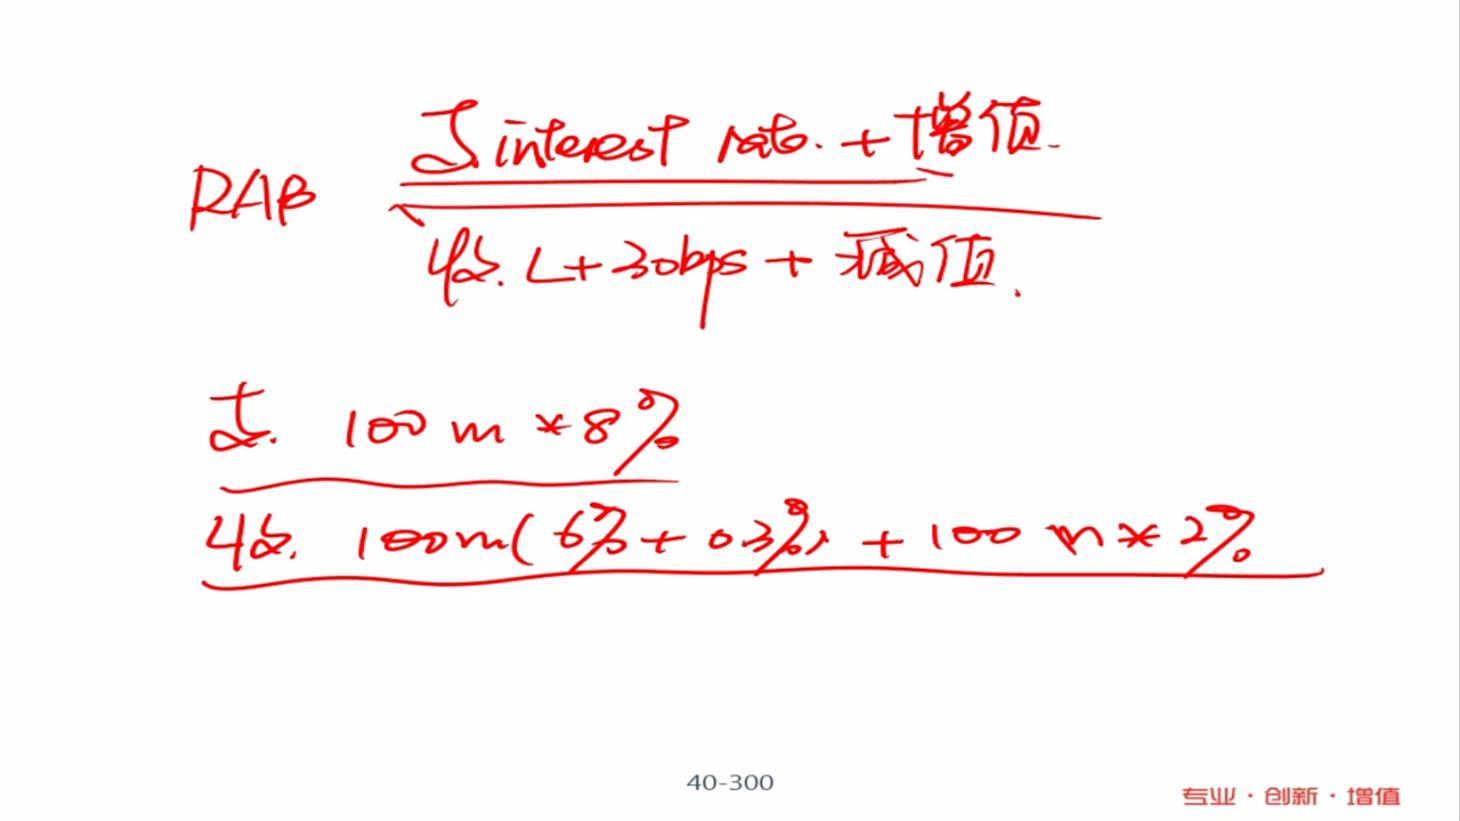 支 interest rate. + 增值.
RAB
收. L+30bps + 减值.
支. 100 m * 8%
收. 100m(6%+0.3%) + 100 m * 2%
40-300
专业·创新·增值